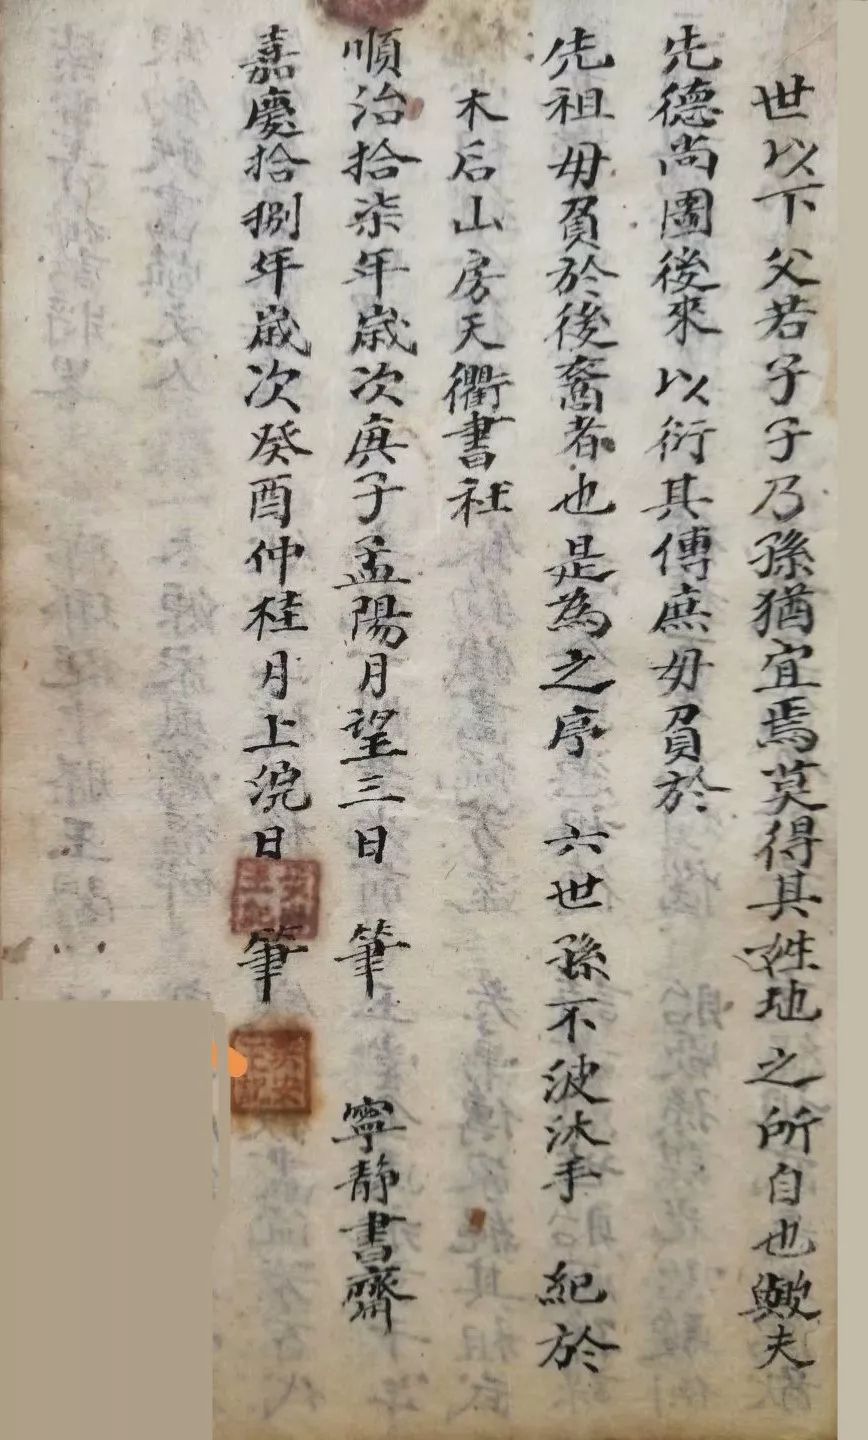 世以下父若子子乃孫猶宜焉莫得其姓地之所自也歟夫
先德尚圖後來以衍其傳庶毋負於
先祖毋負於後裔者也是為之序 六世孫不波沐手 紀於
木后山房天衢書社
順治拾柒年歲次庚子孟陽月望三日 筆 寧靜書齋
嘉慶拾捌年歲次癸酉仲桂月上浣日 筆